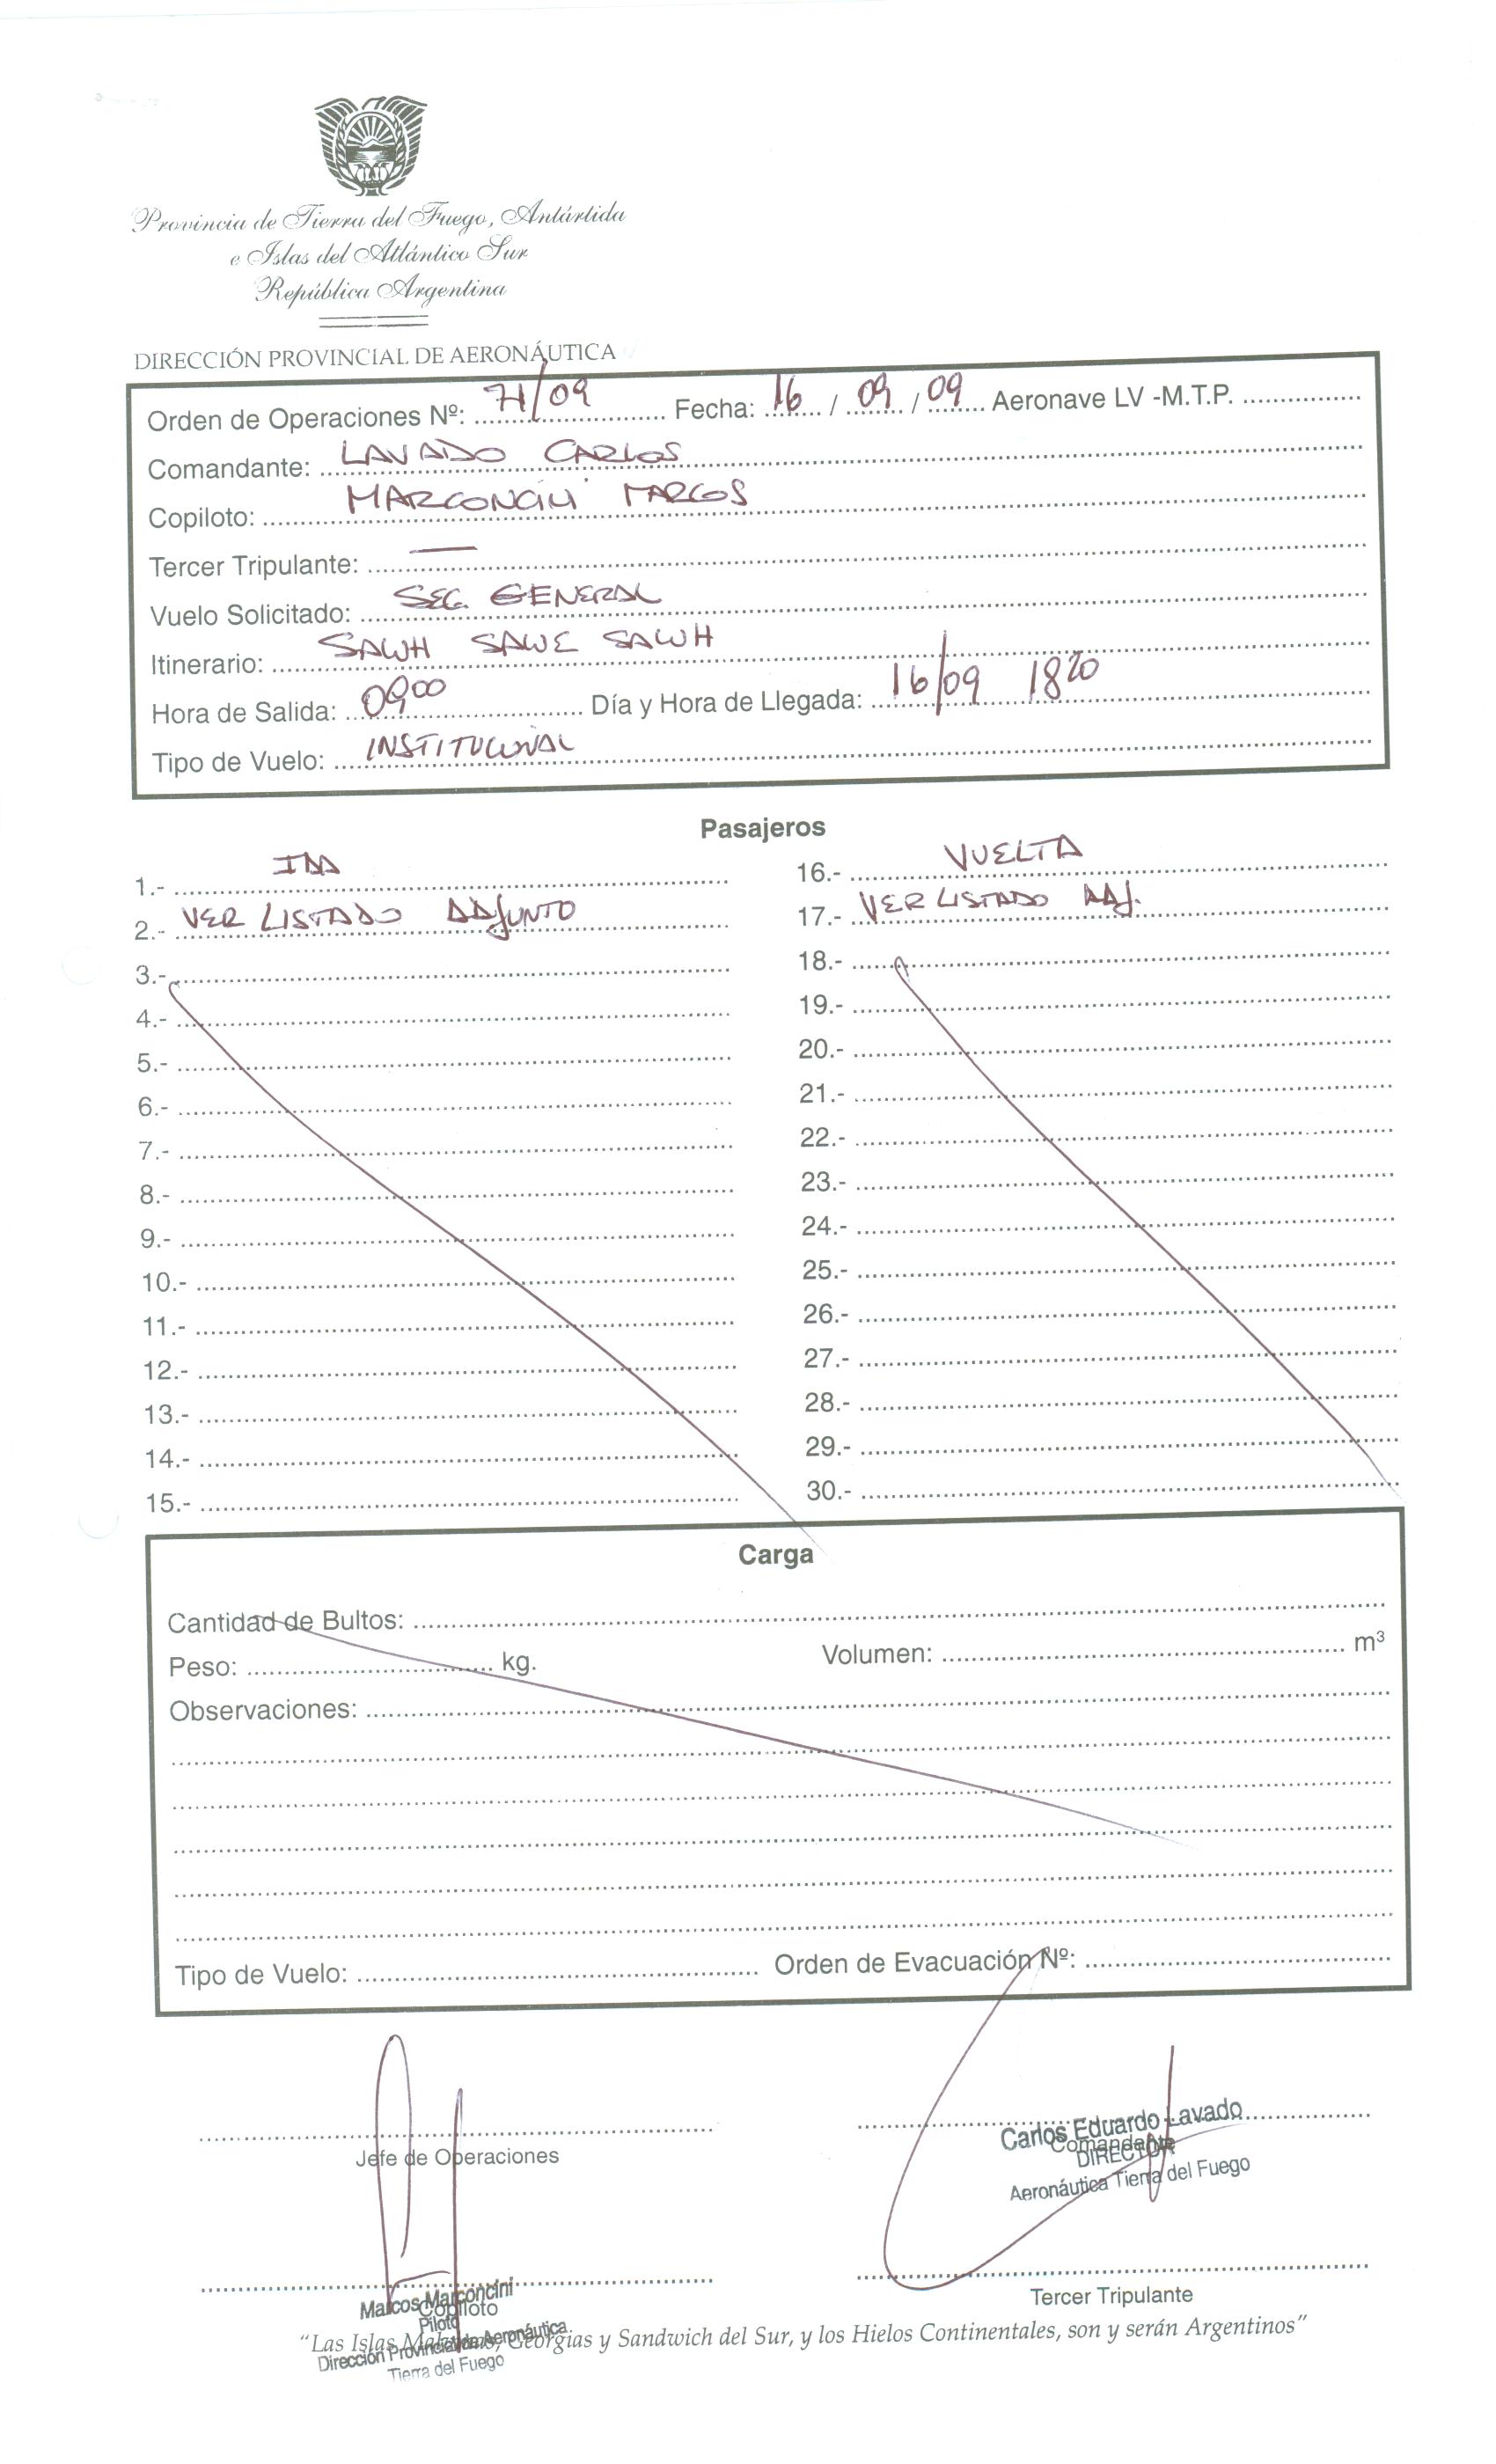 Provincia de Tierra del Fuego, Antártida
e Islas del Atlántico Sur
República Argentina
DIRECCIÓN PROVINCIAL DE AERONÁUTICA
Orden de Operaciones Nº: 71/09 Fecha: 16 / 09 / 09 Aeronave LV -M.T.P.
Comandante: LAVADO CARLOS
Copiloto: MARCONCINI MARCOS
Tercer Tripulante: —
Vuelo Solicitado: SEC. GENERAL
Itinerario: SAWH SAWE SAWH
Hora de Salida: 0900 Día y Hora de Llegada: 16/09 1820
Tipo de Vuelo: INSTITUCIONAL
Pasajeros
1.- IDA
2.- VER LISTADO ADJUNTO
3.-
4.-
5.-
6.-
7.-
8.-
9.-
10.-
11.-
12.-
13.-
14.-
15.-
16.- VUELTA
17.- VER LISTADO ADJ.
18.-
19.-
20.-
21.-
22.-
23.-
24.-
25.-
26.-
27.-
28.-
29.-
30.-
Carga
Cantidad de Bultos:
Peso: kg. Volumen: m³
Observaciones:
Tipo de Vuelo: Orden de Evacuación Nº:
Jefe de Operaciones
Carlos Eduardo Lavado
Comandante
DIRECTOR
Aeronáutica Tierra del Fuego
Marcos Marconcini
Copiloto
Piloto
Dirección Provincial de Aeronáutica
Tierra del Fuego
Tercer Tripulante
"Las Islas Malvinas, Georgias y Sandwich del Sur, y los Hielos Continentales, son y serán Argentinos"